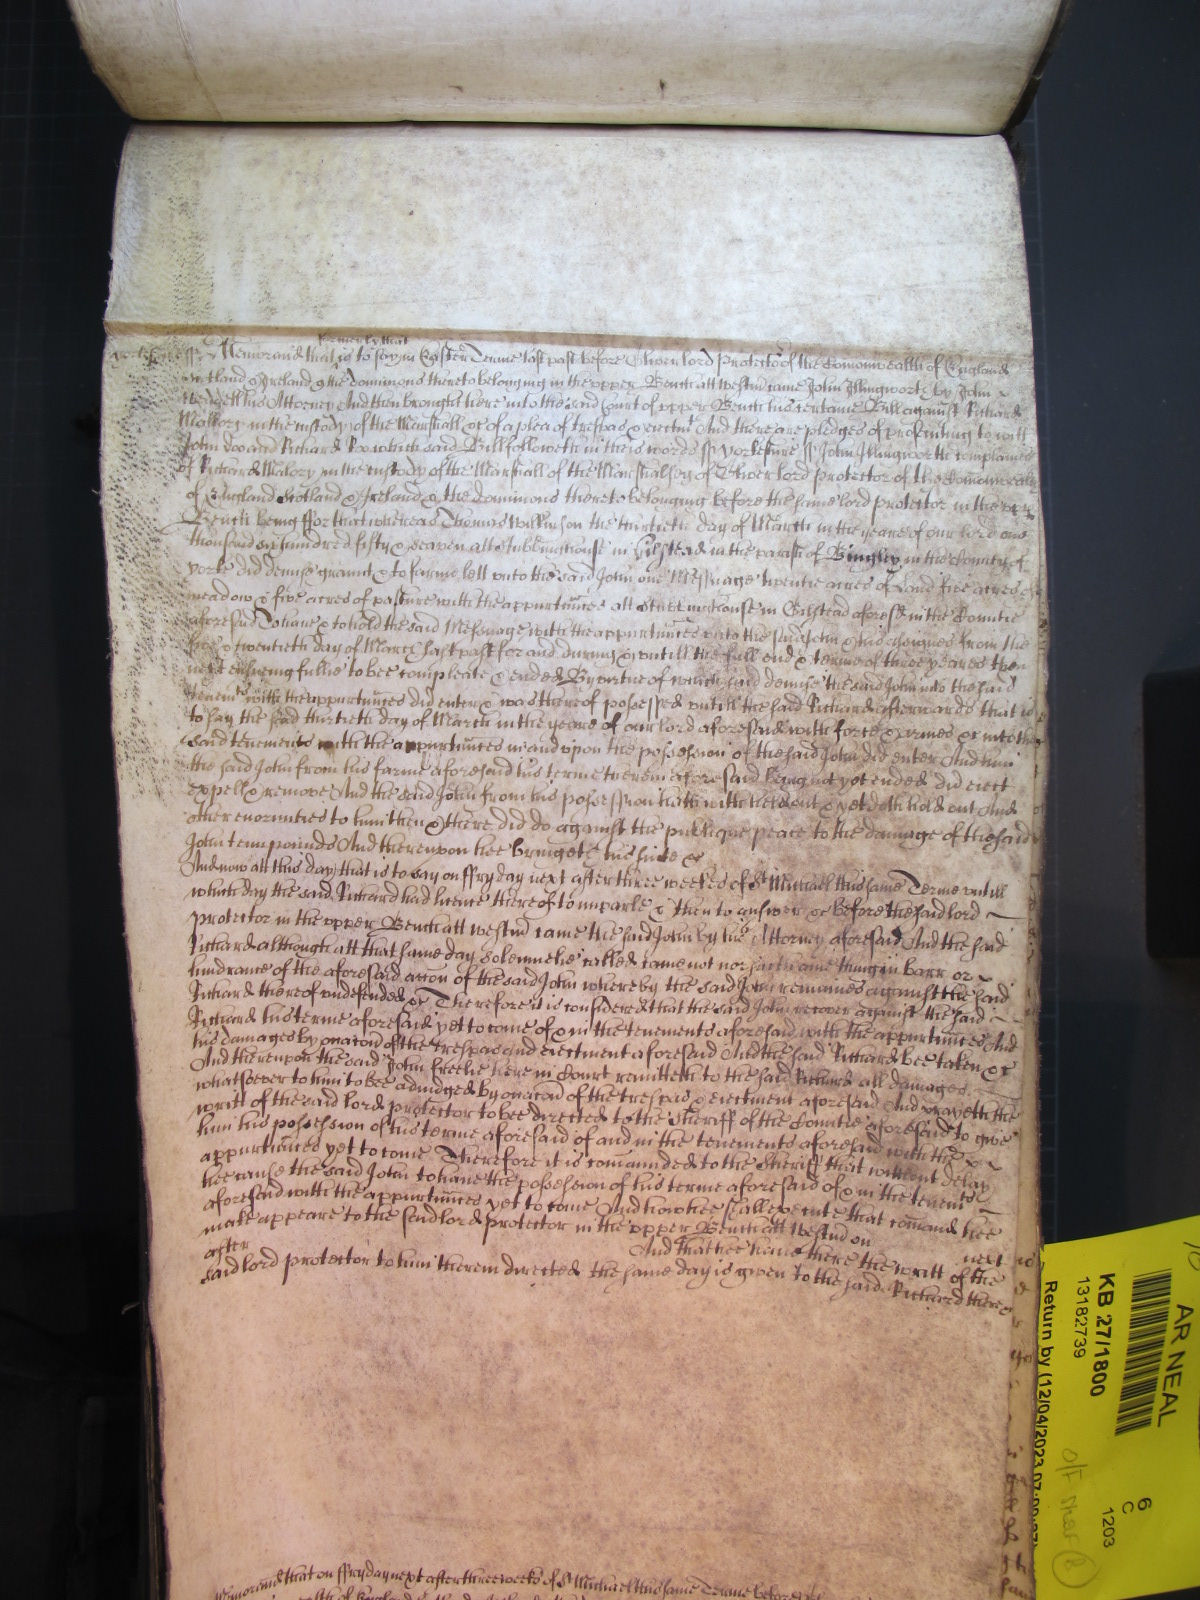 formerly that
Yorkshire ss Memorand that is to say in Easter Terme last past before Oliver lord Protector of the Comonwealth of England
Scotland & Ireland & the dominions thereto belonging in the upper Bench att Westm came John Illingworth by John
his Attorney And then brought here into the said Court of upper Bench his certaine Bill against Richard
Malliory in the custody of the Marshall &c of a plea of trespas & eiectmt And there are pledges of prosecuting to witt
John Doo and Richard Roo which said Bill followeth in theis words ss Yorkeshire ss John Illingworth complaines
of Richard Maliory in the custody of the Marshall of the Marshalsey of Oliver lord protector of the Comonwealth
of England Scotland & Ireland & the dominions thereto belonging before the same lord protector in the upper
Bench being ffor that whereas Thomas Wilkinson the thirtieth day of March in the yeare of our lord one
thousand six hundred fifty & seaven att Stubbinghouse in Gilstead in the parish of Bingley in the County of
Yorke did demise graunt & to farme lett unto the said John one Messuage twentie acres of land five acres of
meadow & five acres of pasture with the appurtunces att Stubbinghouse in Gilstead aforesd in the Countie
aforesaid To have & to hold the said Messuage with the appurtunces unto the said John & his assignes from the
five & twentieth day of March last past for and during & untill the full end & terme of three yeares then
next ensueing fullie to bee compleate & ended By virtue of which said demise the said John into the said
tenemts with the appurtunces did enter & was thereof possessed untill the said Richard afterwards that is
to say the said thirtieth day of March in the yeare of our lord aforesaid with force & armes &c into the
said tenements with the appurtunces in and upon the possession of the said John did enter And him
the said John from his farme aforesaid his terme therein aforesaid being not yet ended did eiect
expell & remove And the said John from his possession hath withheld out & yet doth hold out And
other enormities to him then & there did do against the publique peace to the damage of the said
John tenn pounds And thereupon hee bringeth his suite &c
And now att this day that is to say on ffryday next after three weekes of St Michaell this same Terme untill
which day the said Richard had licence thereof to imparle & then to answer &c before the said lord
protector in the upper Bench att Westm came the said John by his Attorney aforesaid And the said
Richard although att that same day solemnelie called came not nor saith anie thing in barr or
hindrance of the aforesaid accon of the said John whereby the said John remaines against the said
Richard thereof undefended &c Therefore it is considered that the said John recover against the said
Richard his terme aforesaid yet to come of & in the tenements aforesaid with the appurtunces And
his damages by occasion of the trespas and eiectment aforesaid And the said Richard bee taken &c
And thereupon the said John freelie here in Court remitteth to the said Richard all damages
whatsoever to him to bee adiudged by occasion of the trespas & eiectment aforesaid And prayeth the
writt of the said lord protector to bee directed to the Sheriff of the Countie aforesaid to give
him his possession of his terme aforesaid of and in the tenements aforesaid with the
appurtunces yet to come Therefore it is comanded to the Sheriff that without delay
hee cause the said John to have the possession of his terme aforesaid of & in the tenemts
aforesaid with the appurtunces yet to come And how hee shall execute that comand hee
make appeare to the said lord protector in the upper Bench att Westm on next
after And that hee have there the writt of the
said lord protector to him therein directed the same day is given to the said Richard there &c
Memorand that on ffryday next after three weekes of St Michaell this same Terme before
AR NEAL
KB 27/1800
13182739
Return by (12/04/2023 07:00:27)
6
C
1203